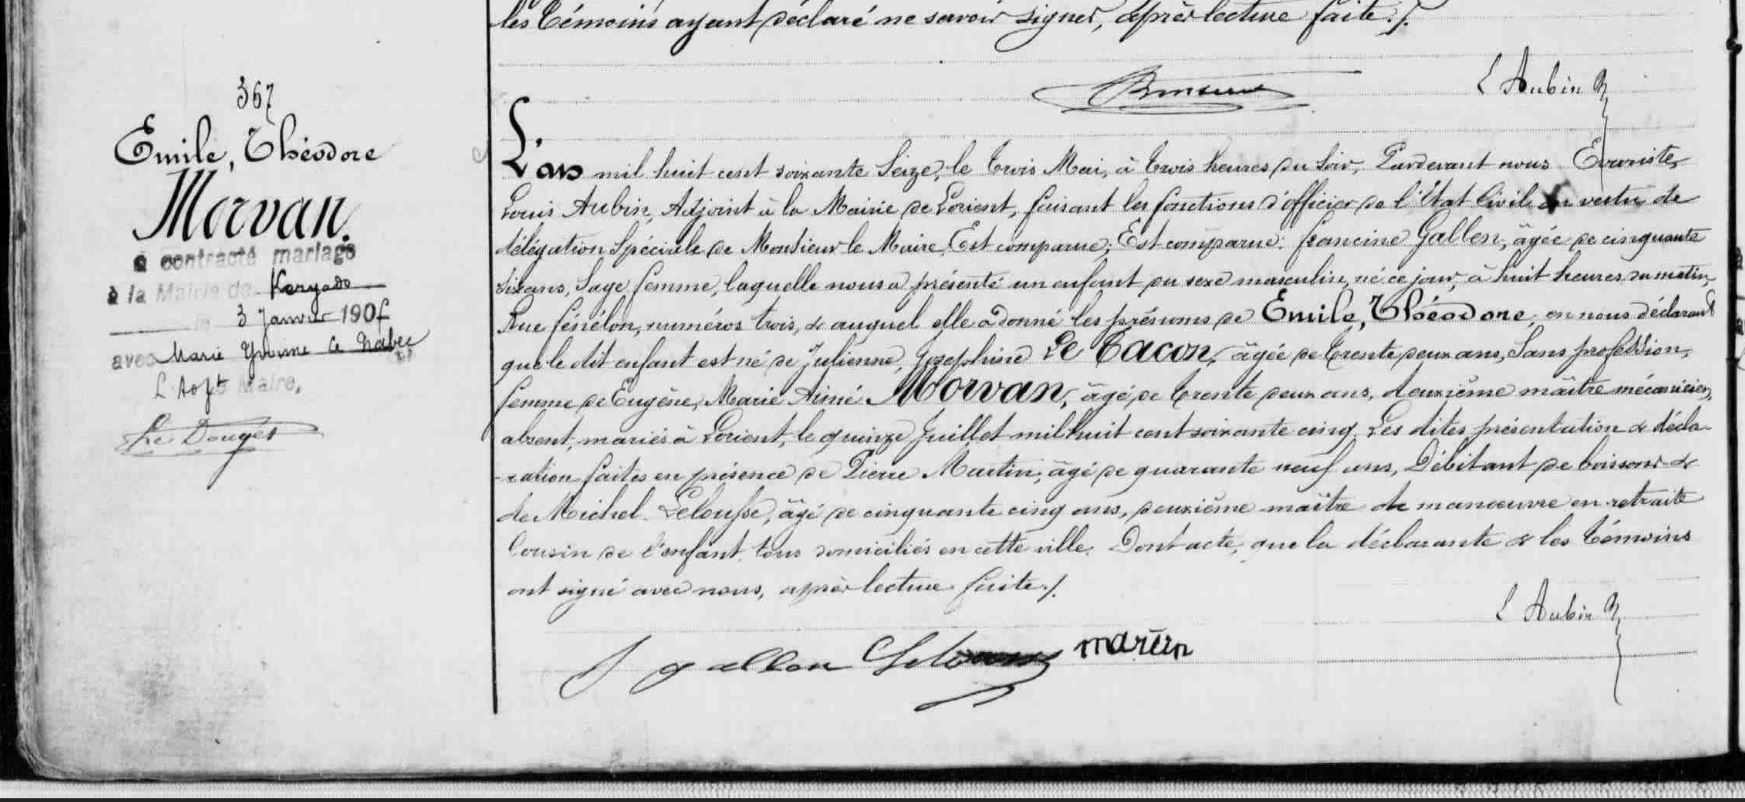 les témoins ayant déclaré ne savoir signer, après lecture faite ./.
L Aubin
367
Emile, Théodore
Morvan.
a contracté mariage
à la Mairie de Keryado
le 3 Janvier 190
avec Marie Yvonne Le
L'Adjt Maire,
L'an mil huit cent soixante Seize, le trois Mai, à trois heures du Soir, Pardevant nous Evariste
Louis Aubin, Adjoint à la Mairie de Lorient, faisant les fonctions d'officier de l'Etat Civil en vertu de
délégation Spéciale de Monsieur le Maire, Est comparue; Est comparue: francine Gallen, âgée de cinquante
six ans, Sage femme, laquelle nous a présenté un enfant du sexe masculin, né ce jour, à huit heures du matin,
Rue fénélon, numéros trois, & auquel elle a donné les prénoms de Emile, Théodore, en nous déclarant
que le dit enfant est né de Julienne, Josephine Le Tacon, âgée de trente deux ans, Sans profession,
femme de Eugène, Marie Aimé Morvan, âgé de trente deux ans, deuxième maître mécanicien,
absent, mariés à Lorient, le quinze Juillet mil huit cent soixante cinq. Les dites présentation & décla-
-ration faites en présence de Pierre Martin, âgé de quarante neuf ans, Débitant de boissons &
de Michel Lelousse, âgé de cinquante cinq ans, deuxième maître de manœuvre en retraite
Cousin de l'enfant, tous domiciliés en cette ville. Dont acte, que la déclarante & les témoins
ont signé avec nous, après lecture faite ./.
L Aubin
f gallen martin